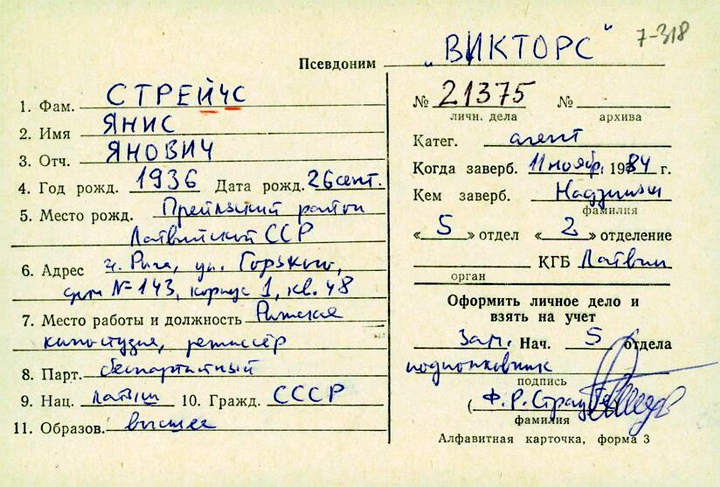 7-318
Псевдоним „ВИКТОРС"
1. Фам. СТРЕЙЧС
2. Имя ЯНИС
3. Отч. ЯНОВИЧ
4. Год рожд. 1936 Дата рожд. 26 сент.
5. Место рожд. Прейльский район
Латвийской ССР
6. Адрес г. Рига, ул. Горького,
дом № 143, корпус 1, кв. 48
7. Место работы и должность Рижская
киностудия, режиссёр
8. Парт. беспартийный
9. Нац. латыш 10. Гражд. СССР
11. Образов. высшее
№ 21375 № 
личн. дела архива
Катег. агент
Когда заверб. 11 нояб. 1984 г.
Кем заверб.
фамилия
«5» отдел «2» отделение
КГБ Латвии
орган
Оформить личное дело и
взять на учет
Зам. Нач. 5 отдела
подполковник
подпись
(Ф. Р.
фамилия
Алфавитная карточка, форма 3